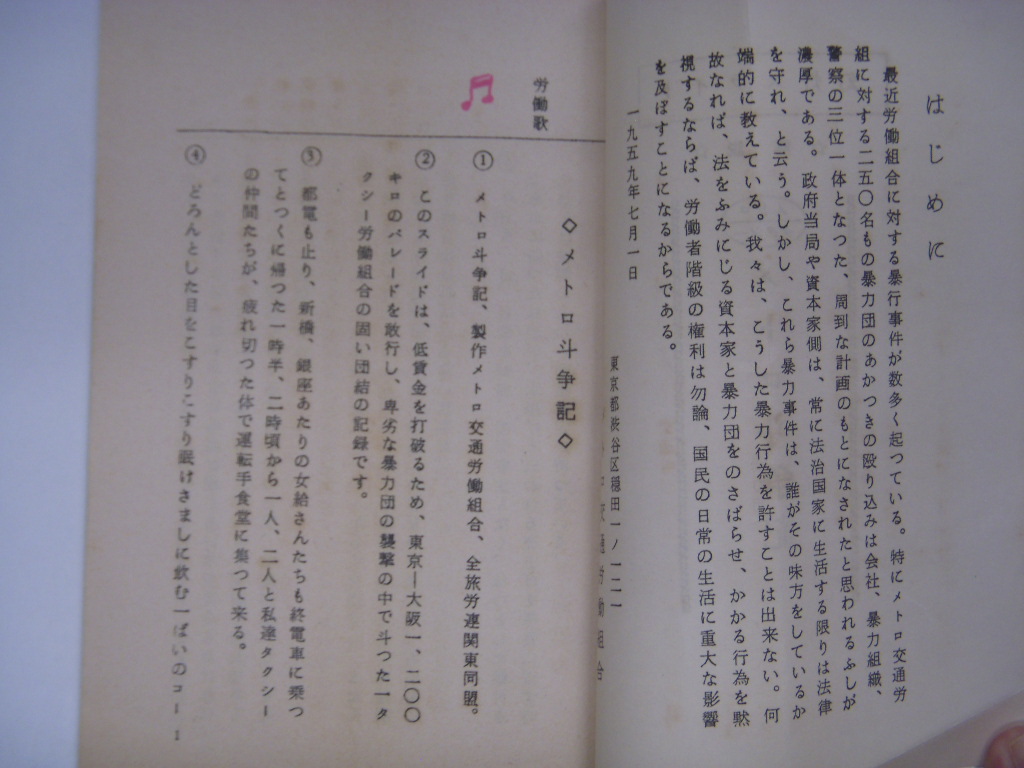 はじめに
最近労働組合に対する暴行事件が数多く起つている。特にメトロ交通労
組に対する二五〇名もの暴力団のあかつきの殴り込みは会社、暴力組織、
警察の三位一体となつた、周到な計画のもとになされたと思われるふしが
濃厚である。政府当局や資本家側は、常に法治国家に生活する限りは法律
を守れ、と云う。しかし、これら暴力事件は、誰がその味方をしているか
端的に教えている。我々は、こうした暴力行為を許すことは出来ない。何
故なれば、法をふみにじる資本家と暴力団をのさばらせ、かかる行為を黙
視するならば、労働者階級の権利は勿論、国民の日常の生活に重大な影響
を及ぼすことになるからである。
一九五九年七月一日
東京都渋谷区穏田一ノ一二一
交通労働組合
労働歌
◇メトロ斗争記◇
① メトロ斗争記、製作メトロ交通労働組合、全旅労連関東同盟。
② このスライドは、低賃金を打破るため、東京ー大阪一、二〇〇
キロのパレードを敢行し、卑劣な暴力団の襲撃の中で斗つた一タ
クシー労働組合の固い団結の記録です。
③ 都電も止り、新橋、銀座あたりの女給さんたちも終電車に乗つ
てとつくに帰つた一時半、二時頃から一人、二人と私達タクシー
の仲間たちが、疲れ切つた体で運転手食堂に集つて来る。
④ どろんとした目をこすりこすり眠けさましに飲む一ぱいのコー
1